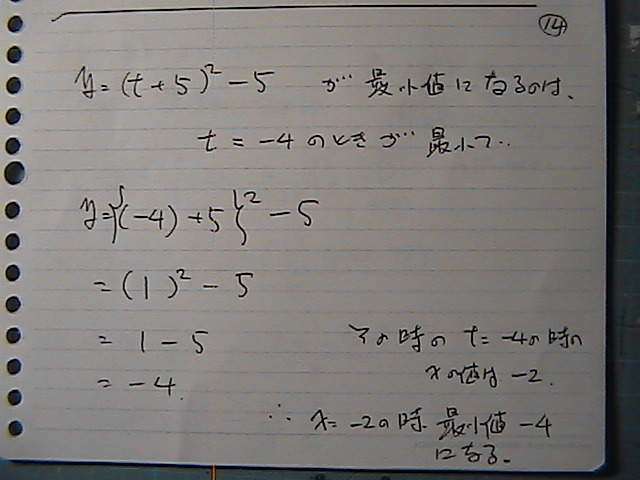 ⑭
y=(t+5)²-5 が 最小値になるのは、
t=-4のときが 最小で..
y={(-4)+5}²-5
=(1)²-5
=1-5
=-4.
その時の t=-4の時の
xの値は -2.
∴ x=-2の時 最小値 -4
になる。